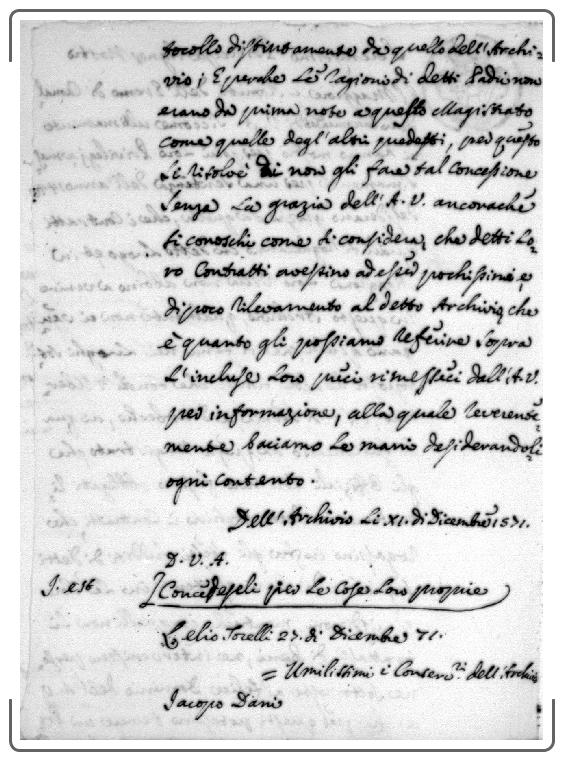 tocollo distintamente da quello dell'Archi-
vio; E perche Le ragioni di detti Padri non
erano da prima note a questo Magistrato
come quelle degl'altri predetti, per questo
si risolvè di non gli fare tal Concessione
senza La grazia dell'A. V. ancorachè
si conoschi come si considera, che detti Lo-
ro Contratti avessino ad esser pochissimi, e
di poco rilevamento al detto Archivio, che
è quanto gli possiamo referire sopra
L'incluse Loro preci rimesseci dall'A. V.
per informazione, alla quale reverente-
mente baciamo Le mani desiderandoli
ogni contento.
Dell'Archivio Li XI. di Dicembre 1571.
D. V. A.
J. est Concedeseli per Le Cose Loro proprie
Lelio Torelli 27. di Dicembre 71.
= Umilissimi i Conserv.ri dell'Archivio
Jacopo Dani